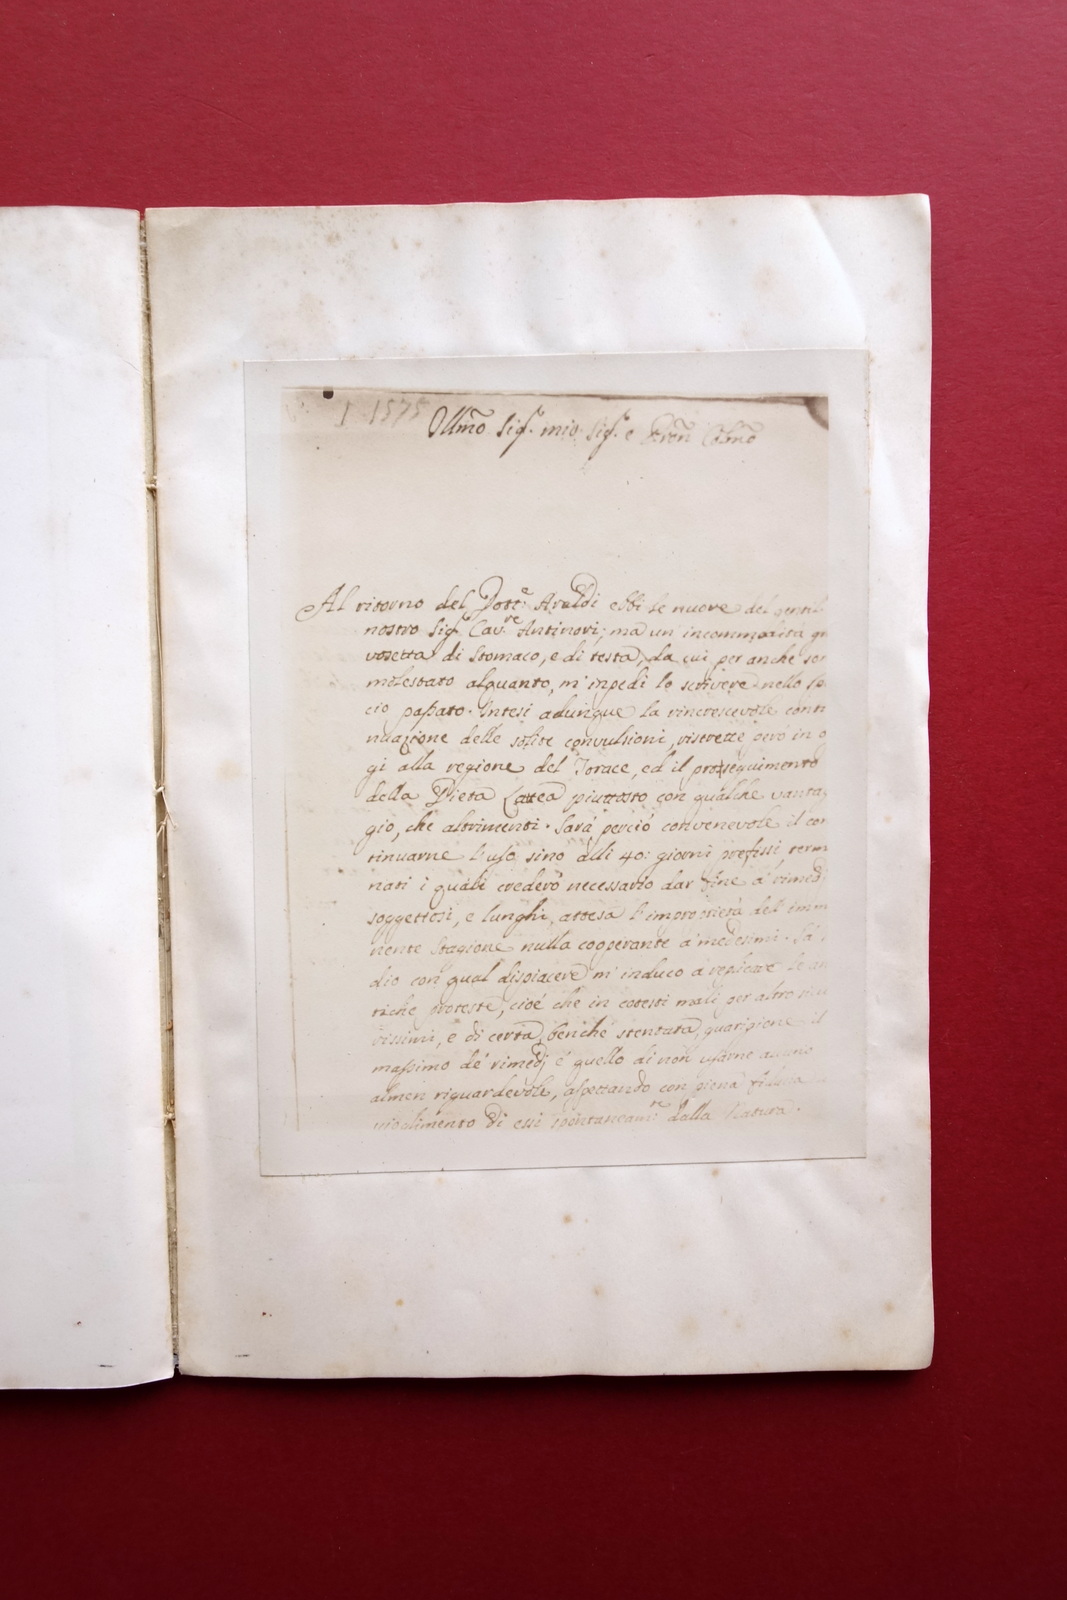 1 1575
Illmo Sigr. mio Sigr. e Pron Colmo
Al ritorno del Dottre Araldi ebbi le nuove del gentil
nostro Sigr. Cavre Antinori; ma un incommodità gra
vosetta di stomaco, e di testa, da cui per anche son
molestato alquanto, m'inpedì lo scrivere nello
cio passato. Intesi adunque la rincrescevole conti
nuazione delle solite convulsioni, ristrette però in og
gi alla regione del Torace, ed il proseguimento
della Dieta Lattea piuttosto con qualche vantag
gio, che altrimenti. Sarà perciò convenevole il con
tinuarne l'uso sino alli 40: giorni prefissi termi
nati i quali crederò necessario dar fine a' rimedj
soggettosi, e lunghi, attesa l'improprietà del immi
nente stagione nulla cooperante a' medesimi. Sa
dio con qual dispiacere m'induco a replicare le an
tiche proteste, cioè che in cotesti mali per altro
vissimi, e di certa, benché stentata, guarigione il
massimo de' rimedj è quello di non usarne alcuno
almen riguardevole, aspettando con piena fiducia
di essi spontaneamte dalla Natura.